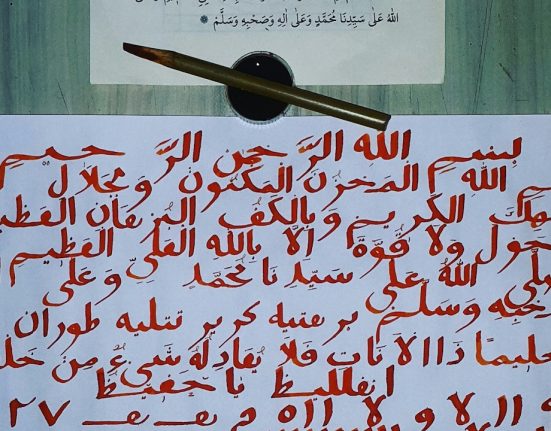 اللهُ عَلَى سَيِّدِنَا مُحَمَّدٍ وَعَلَى اٰلِهِ وَصَحْبِهِ وَسَلَّمَ
بِسْمِ اللهِ الرَّحْمٰنِ الرَّحِيمِ
اللهِ المَخْزُنِ المَكْنُونِ وَبِجَلَالِ
الكَرِيمِ وَبِالكَفِّ البُرْهَانِ العَظِي
حَوْلَ وَلَا قُوَّةَ اِلَّا بِاللهِ العَلِيِّ العَظِيمِ
اللهُ عَلَى سَيِّدِنَا مُحَمَّدٍ وَعَلَى
وَسَلَّمَ برهتيه كرير تتليه طوران
حليمًا ذَا الاَنَاتِ فَلَا يُعَادِلُهُ شَيْءٌ مِنْ خَلْ
يا حَفِيظُ
٢٧